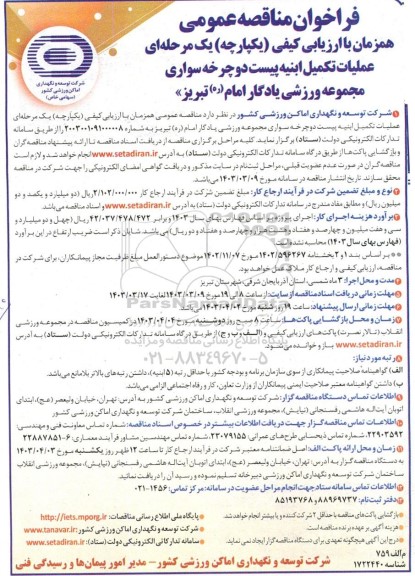 فراخوان مناقصه عمومی
همزمان با ارزیابی کیفی (یکپارچه) یک مرحله‌ای
عملیات تکمیل ابنیه پیست دوچرخه سواری
مجموعه ورزشی یادگار امام (ره) تبریز»
شرکت توسعه و نگهداری
اماکن ورزشی کشور
(سهامی خاص)
شرکت توسعه و نگهداری اماکن ورزشی کشور در نظر دارد مناقصه عمومی همزمان با ارزیابی کیفی (یکپارچه) یک مرحله‌ای
عملیات تکمیل ابنیه پیست دوچرخه سواری مجموعه ورزشی یادگار امام (ره) تبریز به شماره ۲۰۰۳۰۰۱۰۹۱۰۰۰۰۰۸ را از طریق سامانه
تدارکات الکترونیکی دولت (ستاد) برگزار نماید. کلیه مراحل برگزاری مناقصه از دریافت اسناد مناقصه تا ارائه پیشنهاد مناقصه گران
و بازگشایی پاکت‌ها از طریق درگاه سامانه تدارکات الکترونیکی دولت (ستاد) به آدرس www.setadiran.ir انجام خواهد شد و لازم است
مناقصه گران در صورت عدم عضویت قبلی، مراحل ثبت‌نام در سایت مذکور و دریافت گواهی امضای الکترونیکی را جهت شرکت در مناقصه
محقق سازند. تاریخ انتشار مناقصه در سامانه مورخ ۱۴۰۳/۰۳/۰۹ می‌باشد.
نوع و مبلغ تضمین شرکت در فرآیند ارجاع کار: مبلغ تضمین شرکت در فرآیند ارجاع کار ۲/۱۰۲/۰۰۰/۰۰۰ ریال (دو میلیارد و یکصد و دو
میلیون ریال) و مطابق مفاد مندرج در سامانه تدارکات الکترونیکی دولت (ستاد) به آدرس www.setadiran.ir و اسناد مناقصه می‌باشد.
برآورد هزینه اجرای کار:
(فهارس بهای سال ۱۴۰۳) محاسبه نشده است.
بر اساس بند ۱ و ۲ بخشنامه ۱۴۰۲/۵۹۶۲۶۷ مورخ ۱۴۰۲/۱۱/۰۷ موضوع دستورالعمل رفع ظرفیت مجاز پیمانکاران، برای شرکت در
مناقصه، ارزیابی کیفی و ارجاع کار ملاک عمل خواهد بود.
مدت و محل اجرا: ۳ ماه شمسی، استان آذربایجان شرقی، شهرستان تبریز
مهلت زمانی دریافت اسناد مناقصه از سایت: از ساعت ۸ الی ۱۹ مورخ ۱۴۰۳/۰۳/۰۹ لغایت ۱۴۰۳/۰۳/۱۷
مهلت زمانی ارسال پیشنهاد: ساعت ۱۹ روز یکشنبه مورخ ۱۴۰۳/۰۴/۰۳
زمان و محل بازگشایی پاکت‌ها: ساعت ۸ صبح روز دوشنبه مورخ ۱۴۰۳/۰۴/۰۴ در کمیسیون مناقصه در مجموعه ورزشی
انقلاب (تالار نصرت) پاکت‌های ارزیابی کیفی و (الف و ب و ج) از طریق درگاه سامانه تدارکات الکترونیکی دولت (ستاد) به آدرس
www.setadiran.ir باز و خوانده می‌شود.
رتبه مورد نیاز:
الف) گواهینامه صلاحیت پیمانکاری از سوی سازمان برنامه و بودجه کشور با حداقل رتبه (۵) ابنیه)، داشتن رتبه‌های بالاتر بلامانع می‌باشد.
ب) داشتن گواهینامه معتبر صلاحیت ایمنی پیمانکاران از وزارت تعاون، کار و رفاه اجتماعی الزامی می‌باشد.
اطلاعات تماس دستگاه مناقصه گزار: شرکت توسعه و نگهداری اماکن ورزشی کشور به آدرس: تهران، خیابان ولیعصر (عج)، ابتدای
اتوبان آیت‌اله هاشمی رفسنجانی (نیایش)، مجموعه ورزشی انقلاب، ساختمان شرکت توسعه و نگهداری اماکن ورزشی کشور
اطلاعات تماس مناقصه گزار جهت دریافت اطلاعات بیشتر در خصوص اسناد مناقصه: شماره تماس معاونت فنی و مهندسی:
۲۲۹۰۳۵۹۲، شماره تماس ذیحسابی طرح‌های عمرانی: ۲۳۰۷۹۱۵۵، شماره تماس مهندسین مشاور فرآیند معماری: ۶-۲۲۸۸۷۸۵۱
زمان و محل ارائه پاکت الف: اصل ضمانتنامه معتبر شرکت در فرآیند ارجاع کار تا ساعت ۱۲ ظهر روز یکشنبه مورخ ۱۴۰۳/۰۴/۰۳
به دستگاه مناقصه گزار به آدرس: تهران، خیابان ولیعصر (عج)، ابتدای اتوبان آیت‌اله هاشمی رفسنجانی (نیایش)، مجموعه ورزشی انقلاب
ساختمان شرکت توسعه و نگهداری اماکن ورزشی کشور، دبیرخانه تسلیم نموده و رسید آن را دریافت نمایید.
اطلاعات تماس سامانه ستاد جهت انجام مراحل عضویت در سامانه: مرکز تماس: ۱۴۵۶-۰۲۱
دفتر ثبت‌نام: ۸۸۹۶۹۷۳۷ و ۸۵۱۹۳۷۶۸
بازگشایی پاکت‌های مناقصه با حداقل ۲ شرکت کننده و یا بیشتر انجام خواهد شد.
هزینه آگهی بر عهده برنده مناقصه است.
درج این آگهی هیچ‌گونه تعهدی برای دستگاه مناقصه‌گزار ایجاد نمی‌نماید.
پایگاه ملی اطلاع رسانی مناقصات: http://iets.mporg.ir
شرکت توسعه و نگهداری اماکن ورزشی کشور: www.tanavar.ir
سامانه تدارکاتی الکترونیکی دولت (ستاد): www.setadiran.ir
م الف ۷۵۹
شناسه ۱۷۲۲۴۴۰
شرکت توسعه و نگهداری اماکن ورزشی کشور - مدیر امور پیمان‌ها و رسیدگی فنی
ParsNamadData
پایگاه اطلاع رسانی مناقصه و مزایده
۰۲۱-۸۸۳۴۹۶۷۰-۵